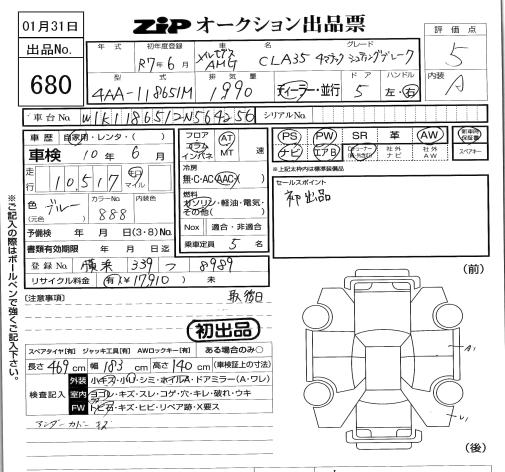 01月31日
出品No.
680
ZiP オークション出品票
評価点
5
内装
A
年式
初年度登録
R7年6月
車名
メルセデス AMG
グレード
CLA35 4マチック シューティングブレーク
型式
4AA-118651M
排気量
1990
ディーラー・並行
ドア
5
ハンドル
左・右
車台No.
W1K1186512N564256
シリアルNo.
車歴 自家用・レンタ・( )
車検 10年6月
走行 10,517 km マイル
色(元色) ブルー カラーNo. 888 内装色
予備検 年 月 日(3・8)No.
書類有効期限 年 月 日迄
登録No. 横浜 339 つ 8989
リサイクル料金 有(¥17,910) 未
フロア コラム インパネ AT MT 速
冷房 無・C・AC・AAC・( )
燃料 ガソリン・軽油・電気・その他( )
Nox 適合・非適合
乗車定員 5 名
PS PW SR 革 AW 新車時保証書
ナビ エアB 社外ナビ 社外AW スペアキー
※上記太枠内は標準装備品
セールスポイント
初出品
【注意事項】
取後日
初出品
スペアタイヤ【有】 ジャッキ工具【有】 AWロックキー【有】 ある場合のみ○
長さ 469 cm 幅 183 cm 高さ 140 cm (車検証上の寸法)
検査記入
外装 小キズ・小凹・シミ・ホイルA・ドアミラー(A・ワレ)
室内 ヨゴレ・キズ・スレ・コゲ・穴・キレ・破れ・ウキ
FW トビ石・キズ・ヒビ・リペア跡・X要ス
アンダーカバー
(前)
A1
(後)
※ご記入の際はボールペンで強くご記入下さい。